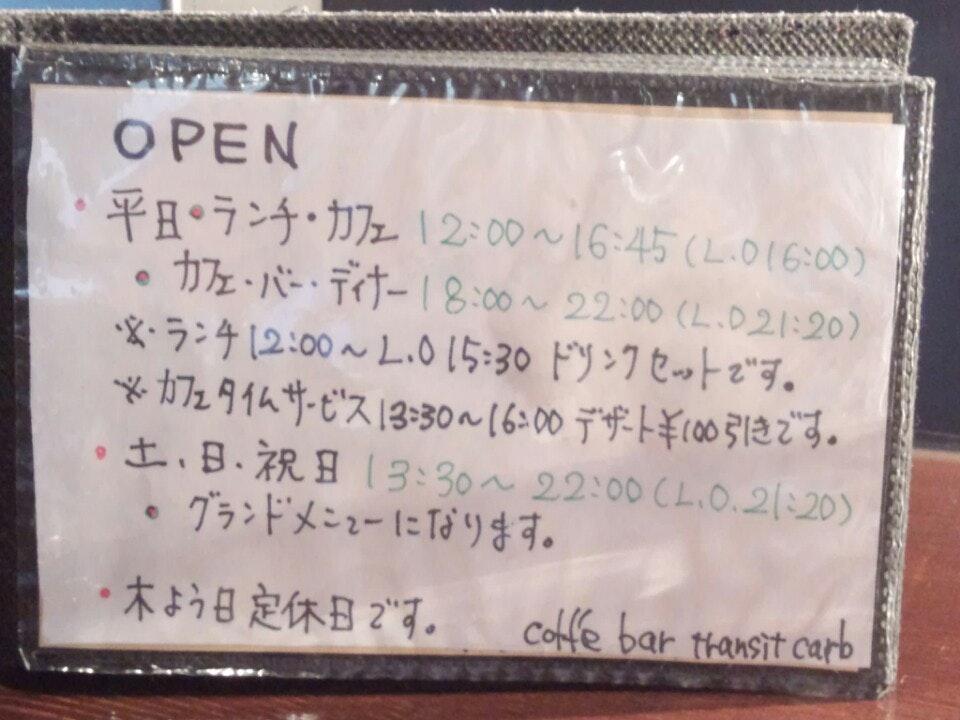 OPEN
・平日・ランチ・カフェ 12:00～16:45(L.O16:00)
・カフェ・バー・ディナー 18:00～22:00(L.O21:20)
※・ランチ12:00～L.O15:30 ドリンクセットです。
※カフェタイムサービス13:30～16:00デザート¥100引きです。
・土、日、祝日 13:30～22:00(L.O.21:20)
・グランドメニューになります。
・木よう日定休日です。
coffe bar transit carb